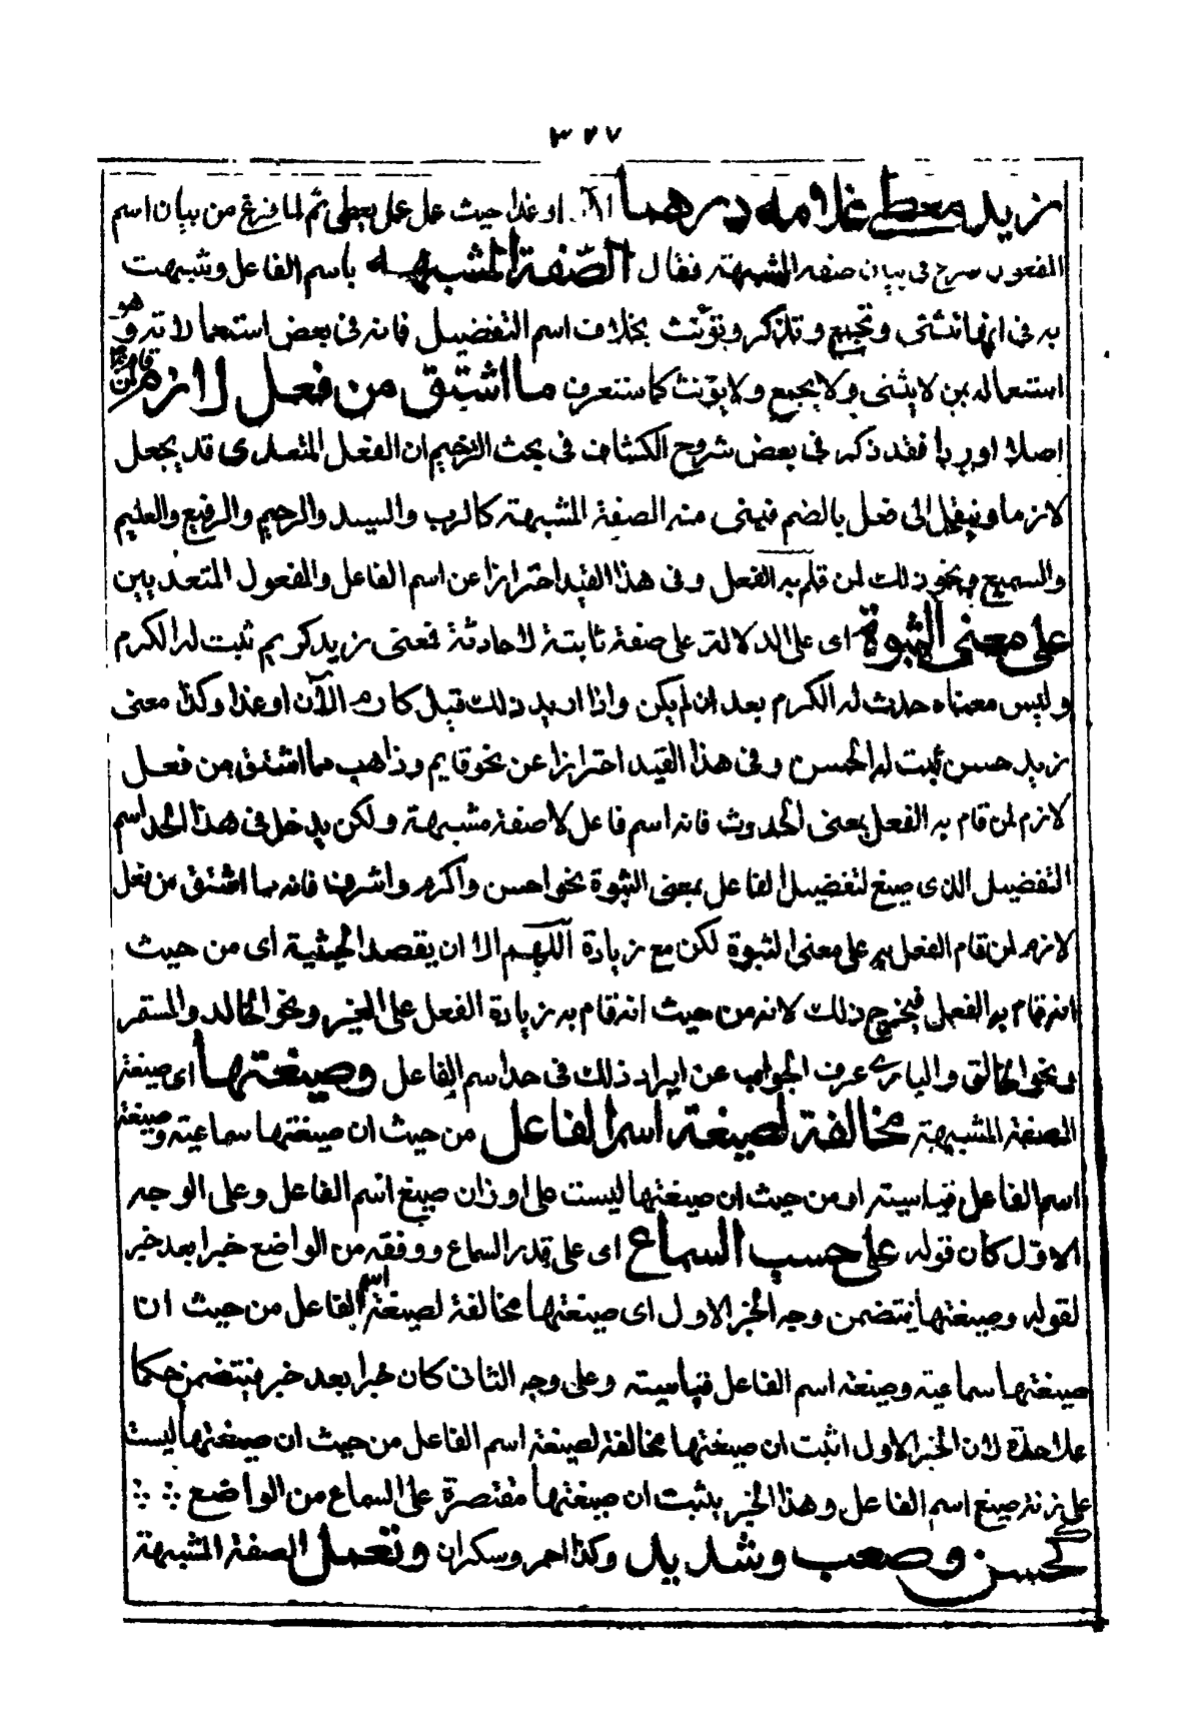 ٣٧٧
زيد معطى غلامه درهما الآن او غدا حيث عمل عمل يعطى ثم لما فرغ من بيان اسم
المفعول شرع فى بيان صفة المشبهة فقال الصفة المشبهة باسم الفاعل وشبهت
به فى انها تثنى وتجمع وتذكر وتؤنث بخلاف اسم التفضيل فانه فى بعض استعمالاته وهو
استعماله بمن لا يثنى ولا يجمع ولا يؤنث كما ستعرف ما اشتق من فعل لازم
اصلا او فقد ذكر فى بعض شروح الكشاف فى بحث الرحيم ان الفعل المتعدى قد يجعل
لازما وينقل الى فعل بالضم فيبنى منه الصفة المشبهة كالرب والسيد والرحيم والرفيع والعليم
والسميع ونحو ذلك لمن قام به الفعل وفى هذا القيد احترازا عن اسم الفاعل والمفعول المتعديين
على معنى الثبوة اى على الدلالة على صفة ثابتة لا حادثة فمعنى زيد كريم ثبت له الكرم
وليس معناه حدث له الكرم بعد ان لم يكن واذا اريد ذلك قيل كارم الآن او غدا وكذا معنى
زيد حسن ثبت له الحسن وفى هذا القيد احترازا عن نحو قايم وذاهب مما اشتق من فعل
لازم لمن قام به الفعل بمعنى الحدوث فانه اسم فاعل لا صفة مشبهة ولكن يدخل فى هذا الحد اسم
التفضيل الذى صيغ لتفضيل الفاعل بمعنى الثبوة نحو احسن واكرم واشرف فانه مما اشتق من فعل
لازم لمن قام الفعل به على معنى الثبوة لكن مع زيادة اللهم الا ان يقصد الحيثية اى من حيث
انه قام به الفعل فيخرج ذلك لانه من حيث انه قام به زيادة الفعل على الغير ونحو الخالد والمستمر
ونحو الخالق والبارئ عرف الجواب عن ايراد ذلك فى حد اسم الفاعل وصيغتها اى صيغة
الصفة المشبهة مخالفة لصيغة اسم الفاعل من حيث ان صيغتها سماعية وصيغة
اسم الفاعل قياسية او من حيث ان صيغتها ليست على اوزان صيغ اسم الفاعل وعلى الوجه
الاول كان قوله على حسب السماع اى على قدر السماع ووفقه من الواضع خبرا بعد خبر
لقوله وصيغتها يتضمن وجه الخبر الاول اى صيغتها مخالفة لصيغة اسم الفاعل من حيث ان
صيغتها سماعية وصيغة اسم الفاعل قياسية وعلى وجه الثانى كان خبرا بعد خبر فيتضمن حكما
علاحدة لان الخبر الاول اثبت ان صيغتها مخالفة لصيغة اسم الفاعل من حيث ان صيغتها ليست
على زنة صيغ اسم الفاعل وهذا الخبر يثبت ان صيغتها مقتصرة على السماع من الواضع
كحسن وصعب وشديد وكذا احمر وسكران وتعمل الصفة المشبهة